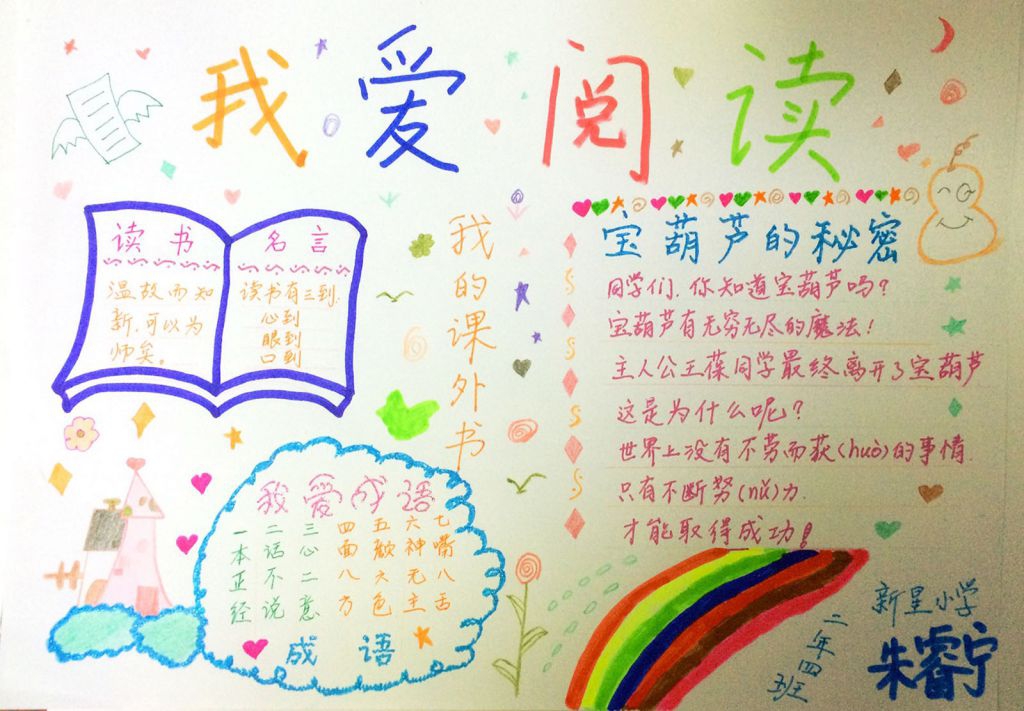 我爱阅读
读书名言
温故而知
新，可以为
师矣。
读书有三到，
心到
眼到
口到
我的课外书
宝葫芦的秘密
同学们，你知道宝葫芦吗？
宝葫芦有无穷无尽的魔法！
主人公王葆同学最终离开了宝葫芦
这是为什么呢？
世界上没有不劳而获(huò)的事情.
只有不断努(nǔ)力.
才能取得成功！
我爱成语
一本正经
二话不说
三心二意
四面八方
五颜六色
六神无主
七嘴八舌
成语
新星小学
二年四班
朱睿宁